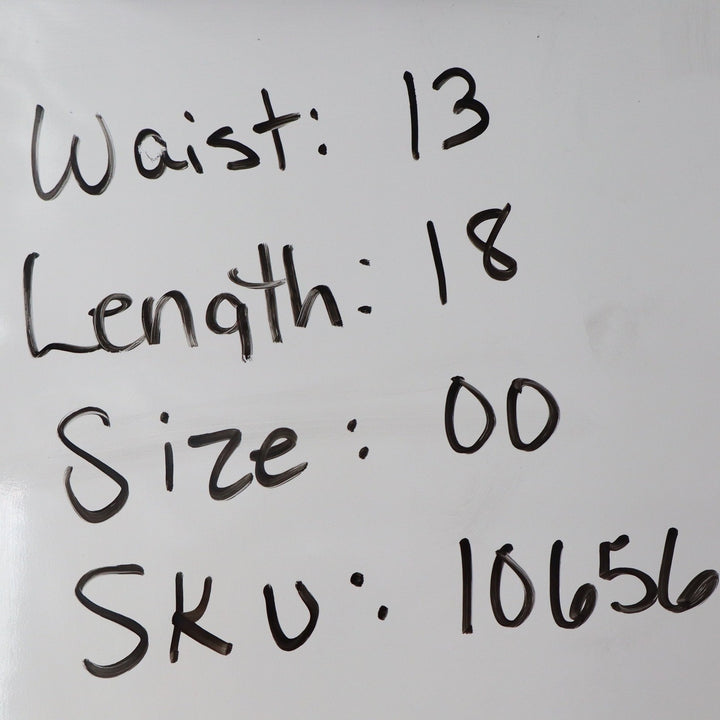 Waist: 13
Length: 18
Size: 00
SKU: 10656